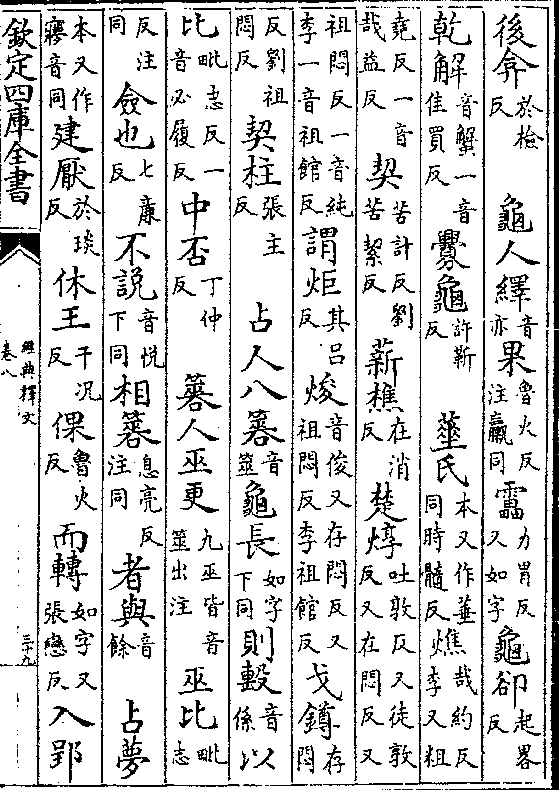 後弇於檢反 龜人繹音亦果魯火反注蠃同靁力胃反又如字龜卻起畧反
乾解音蟹一音佳買反釁龜許靳反 菙氏本又作𦸂同時髓反燋哉約反李又粗
堯反一音哉益反契苦計反劉苦絜反薪樵在消反楚焞吐敦反又徒敦反又在悶反又
祖悶反一音純李一音祖館反謂炬其吕反焌音俊又存悶反又祖悶反李祖館反戈鐏存悶
反劉祖悶反契柱張主反 占人八簭音筮龜長如字下同則毄音係以
比毗志反一音必履反中否丁仲反 簭人巫更九巫皆音筮出注巫比毗志
反注同僉也七亷反不説音悦下同相簭息亮反注同者與音餘 占夢
本又作㝱音同建厭於琰反休王于况反倮魯火反而轉如字又張戀反入郢
欽定四庫全書
經典釋文
卷八
三十九